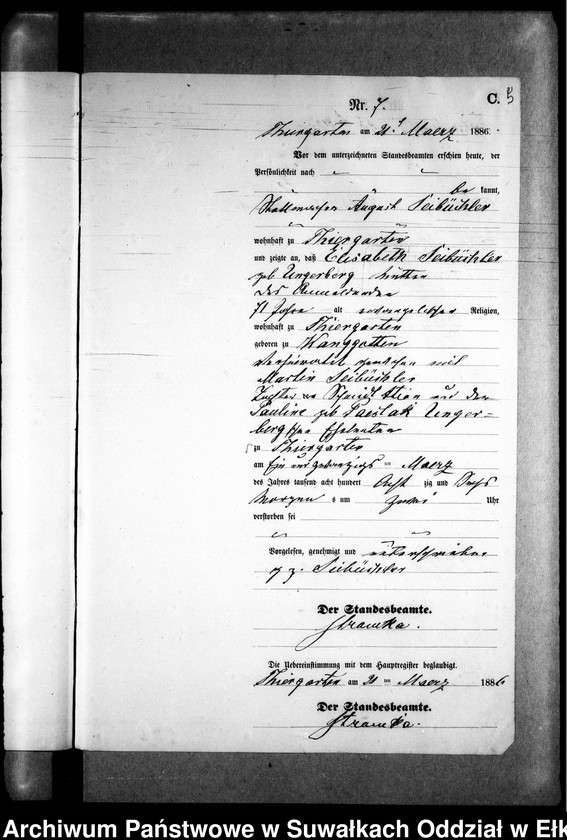 Nr. 7.
C. 5
Thiergarten am 21ᵗ Maerz 1886.
Vor dem unterzeichneten Standesbeamten erschien heute, der
Persönlichkeit nach
be kannt,
August Seibüchler
wohnhaft zu Thiergarten
und zeigte an, daß Elisabeth Seibüchler
geb Ungerberg Mutter
des Anmeldenden
71 Jahre alt evangelischer Religion,
wohnhaft zu Thiergarten
geboren zu
verheirathet gewesen mit
Martin Seibüchler
Tochter der und der
Pauline geb Unger=
berg schen Eheleuten
zu Thiergarten
am Ein und zwanzigs ten Maerz
des Jahres tausend acht hundert Acht zig und Sechs
Morgen s um zwei Uhr
verstorben sei
Vorgelesen, genehmigt und unterschrieben
gz. Seibüchler
Der Standesbeamte.
Die Uebereinstimmung mit dem Hauptregister beglaubigt.
Thiergarten am 21 ten Maerz 1886
Der Standesbeamte.
Archiwum Państwowe w Suwałkach Oddział w Ełk